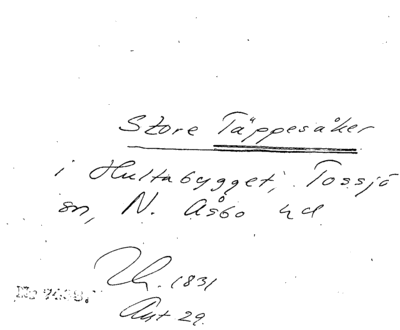 Store Täppesåker
i Hultabygget, Tossjö
sn, N. Åsbo hd
Lh. 1831
Akt 29.